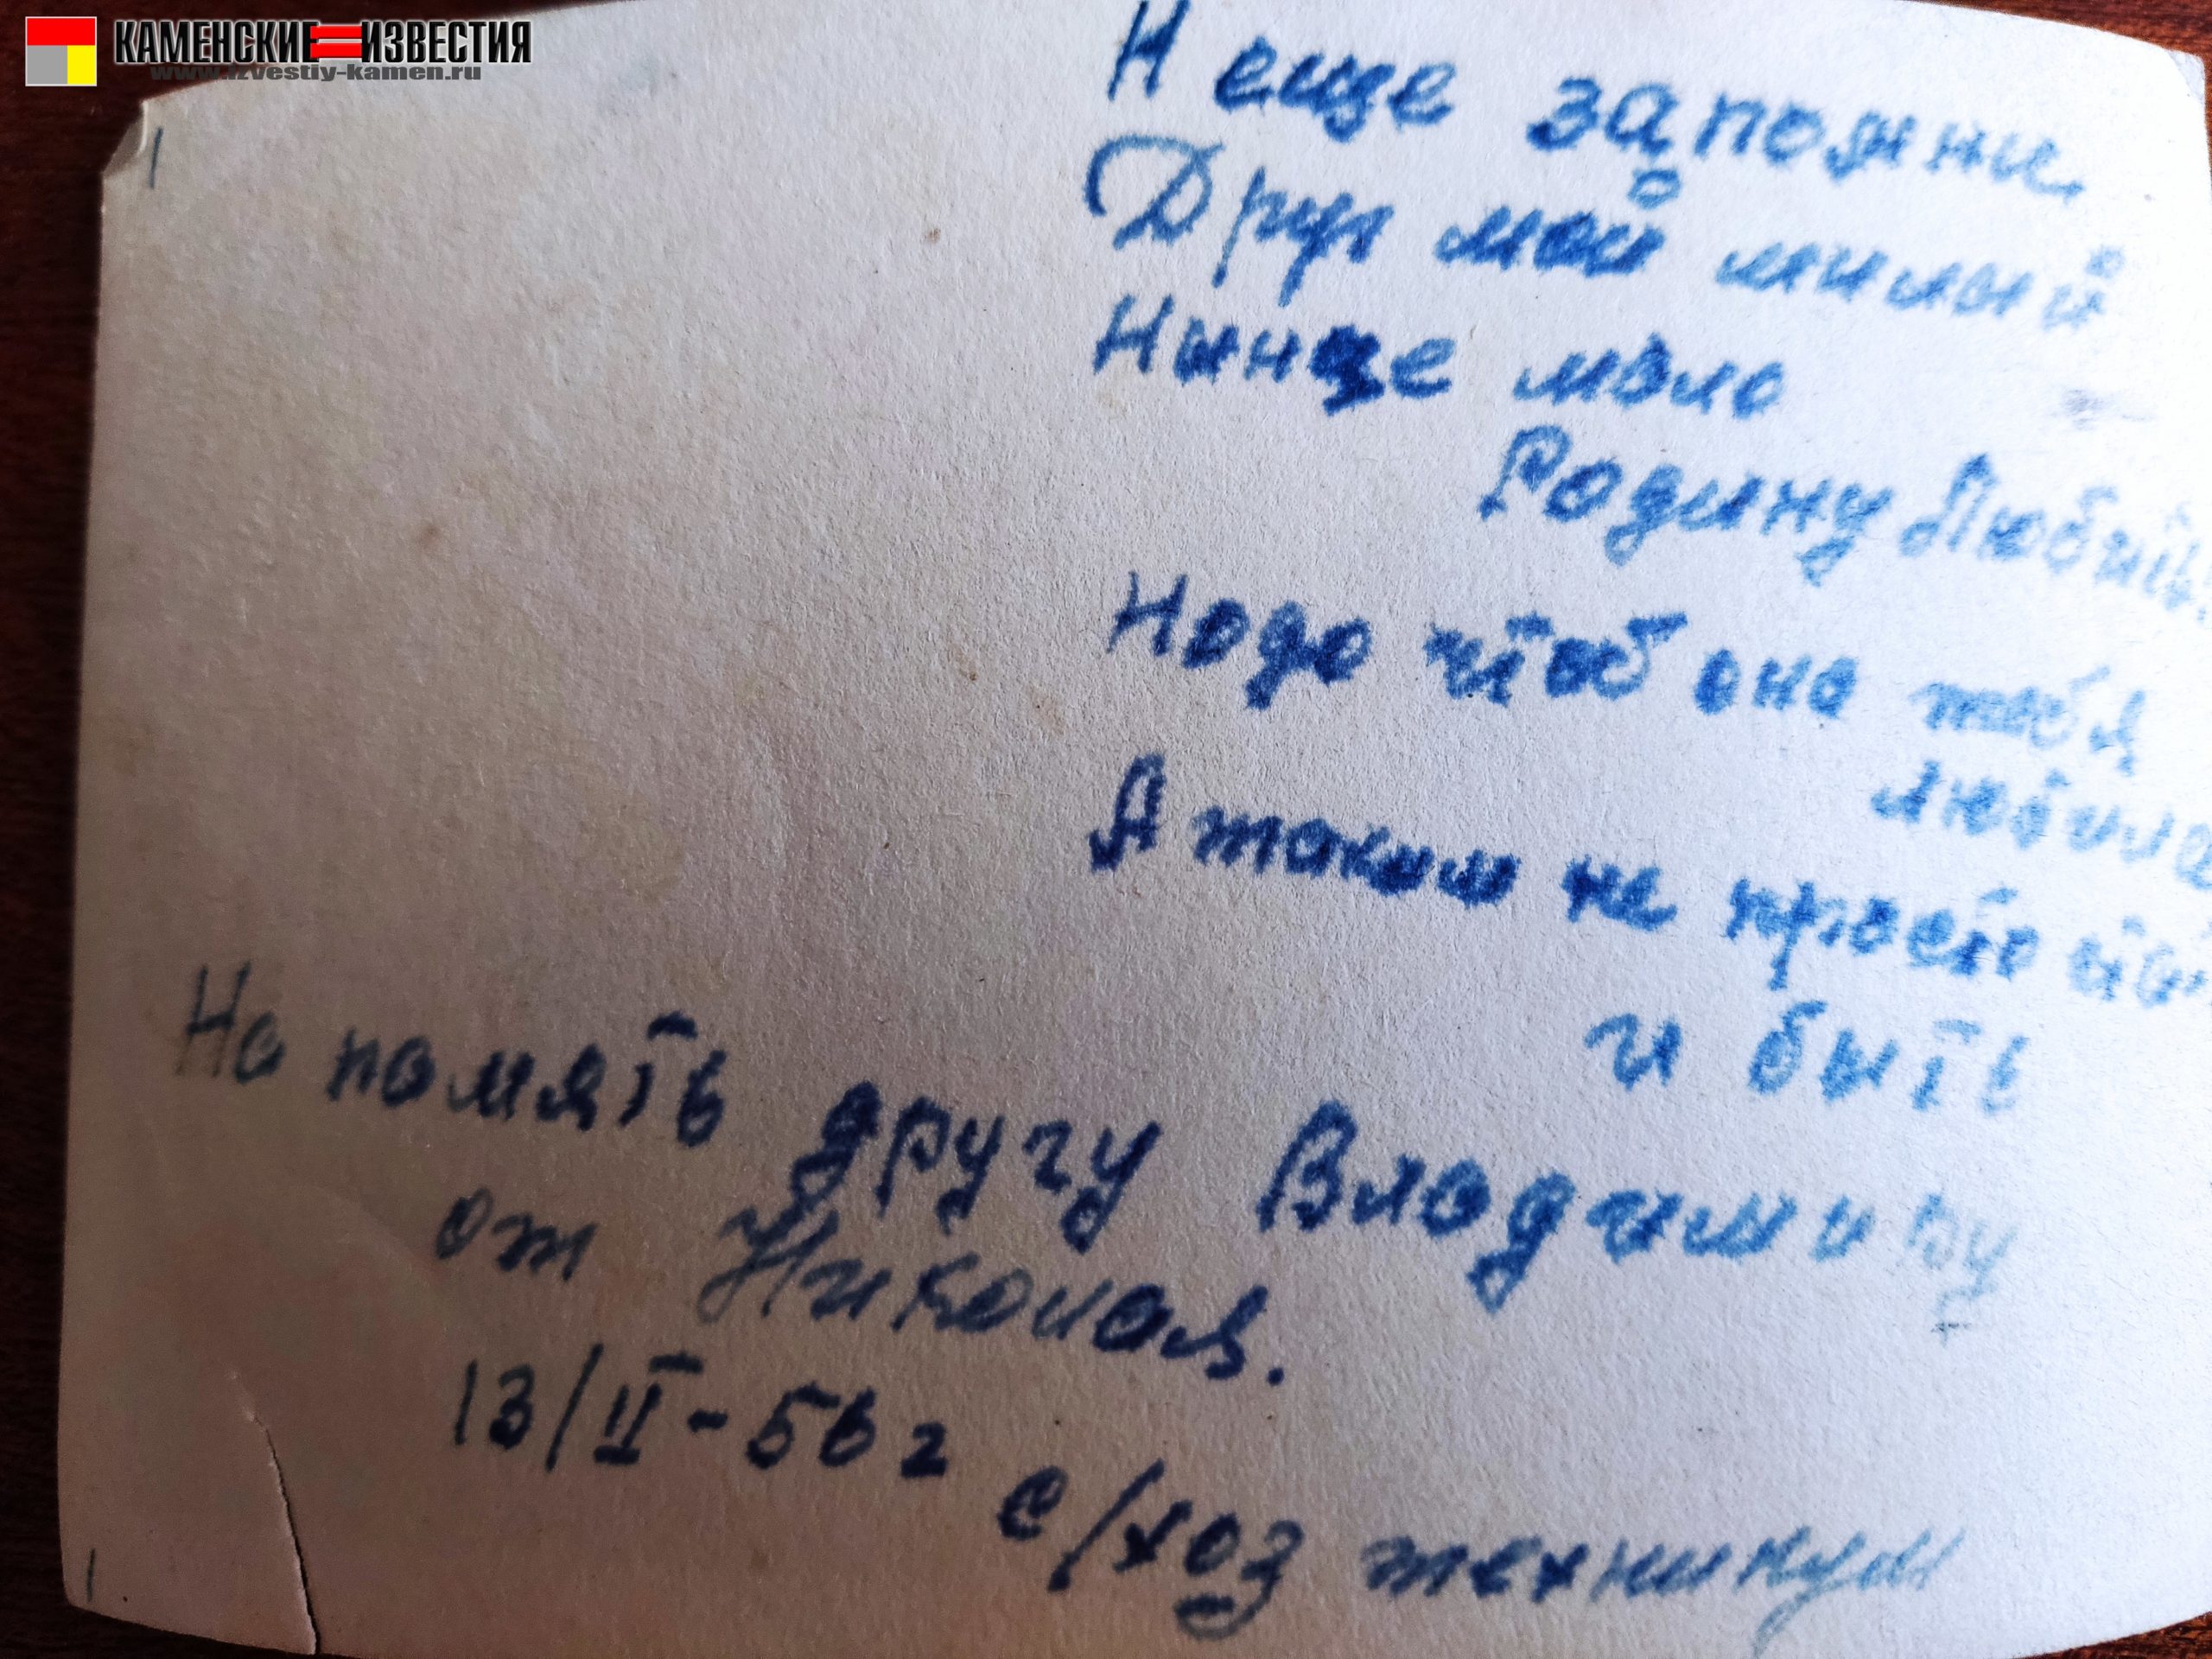 КАМЕНСКИЕ ИЗВЕСТИЯ
www.izvestiy-kamen.ru
И еще запомни
Друг мой милый
Нынще мало
Родину Любить.
Надо чтоб она тебя
любила
А таким не просто
и быть
На память другу Владимиру
от Николая.
13/II-56г
с/хоз техникум